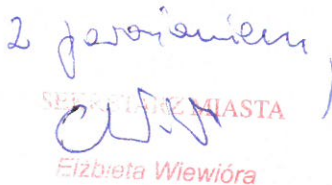 Z poważaniem
SEKRETARZ MIASTA
Elżbieta Wiewióra